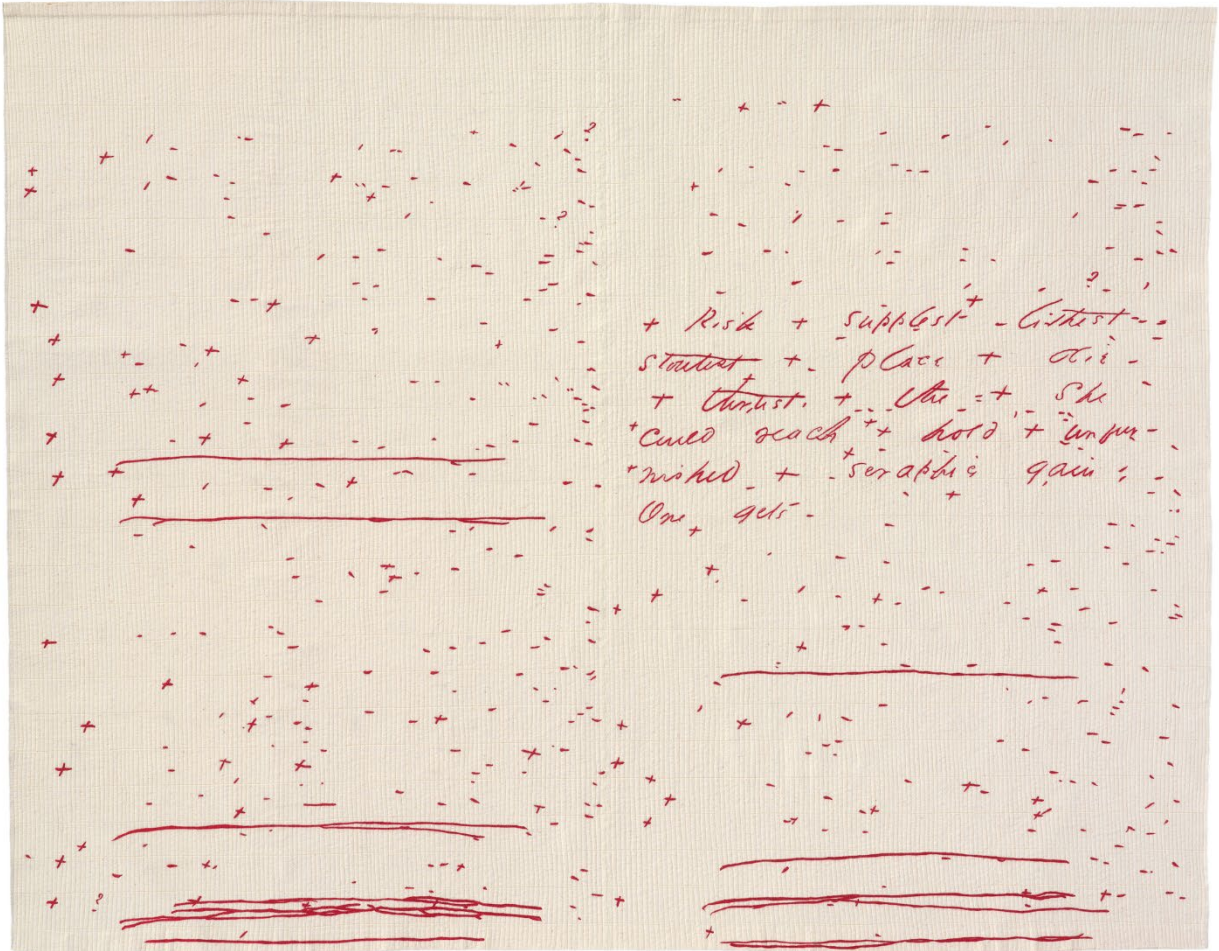 + Risk + supplest + - lithest - -
stoutest + - place + die -
+ thrust. + the - + She
+ could reach + + hold + unfur-
+ nished - + + - seraphic gain,
One + gets -